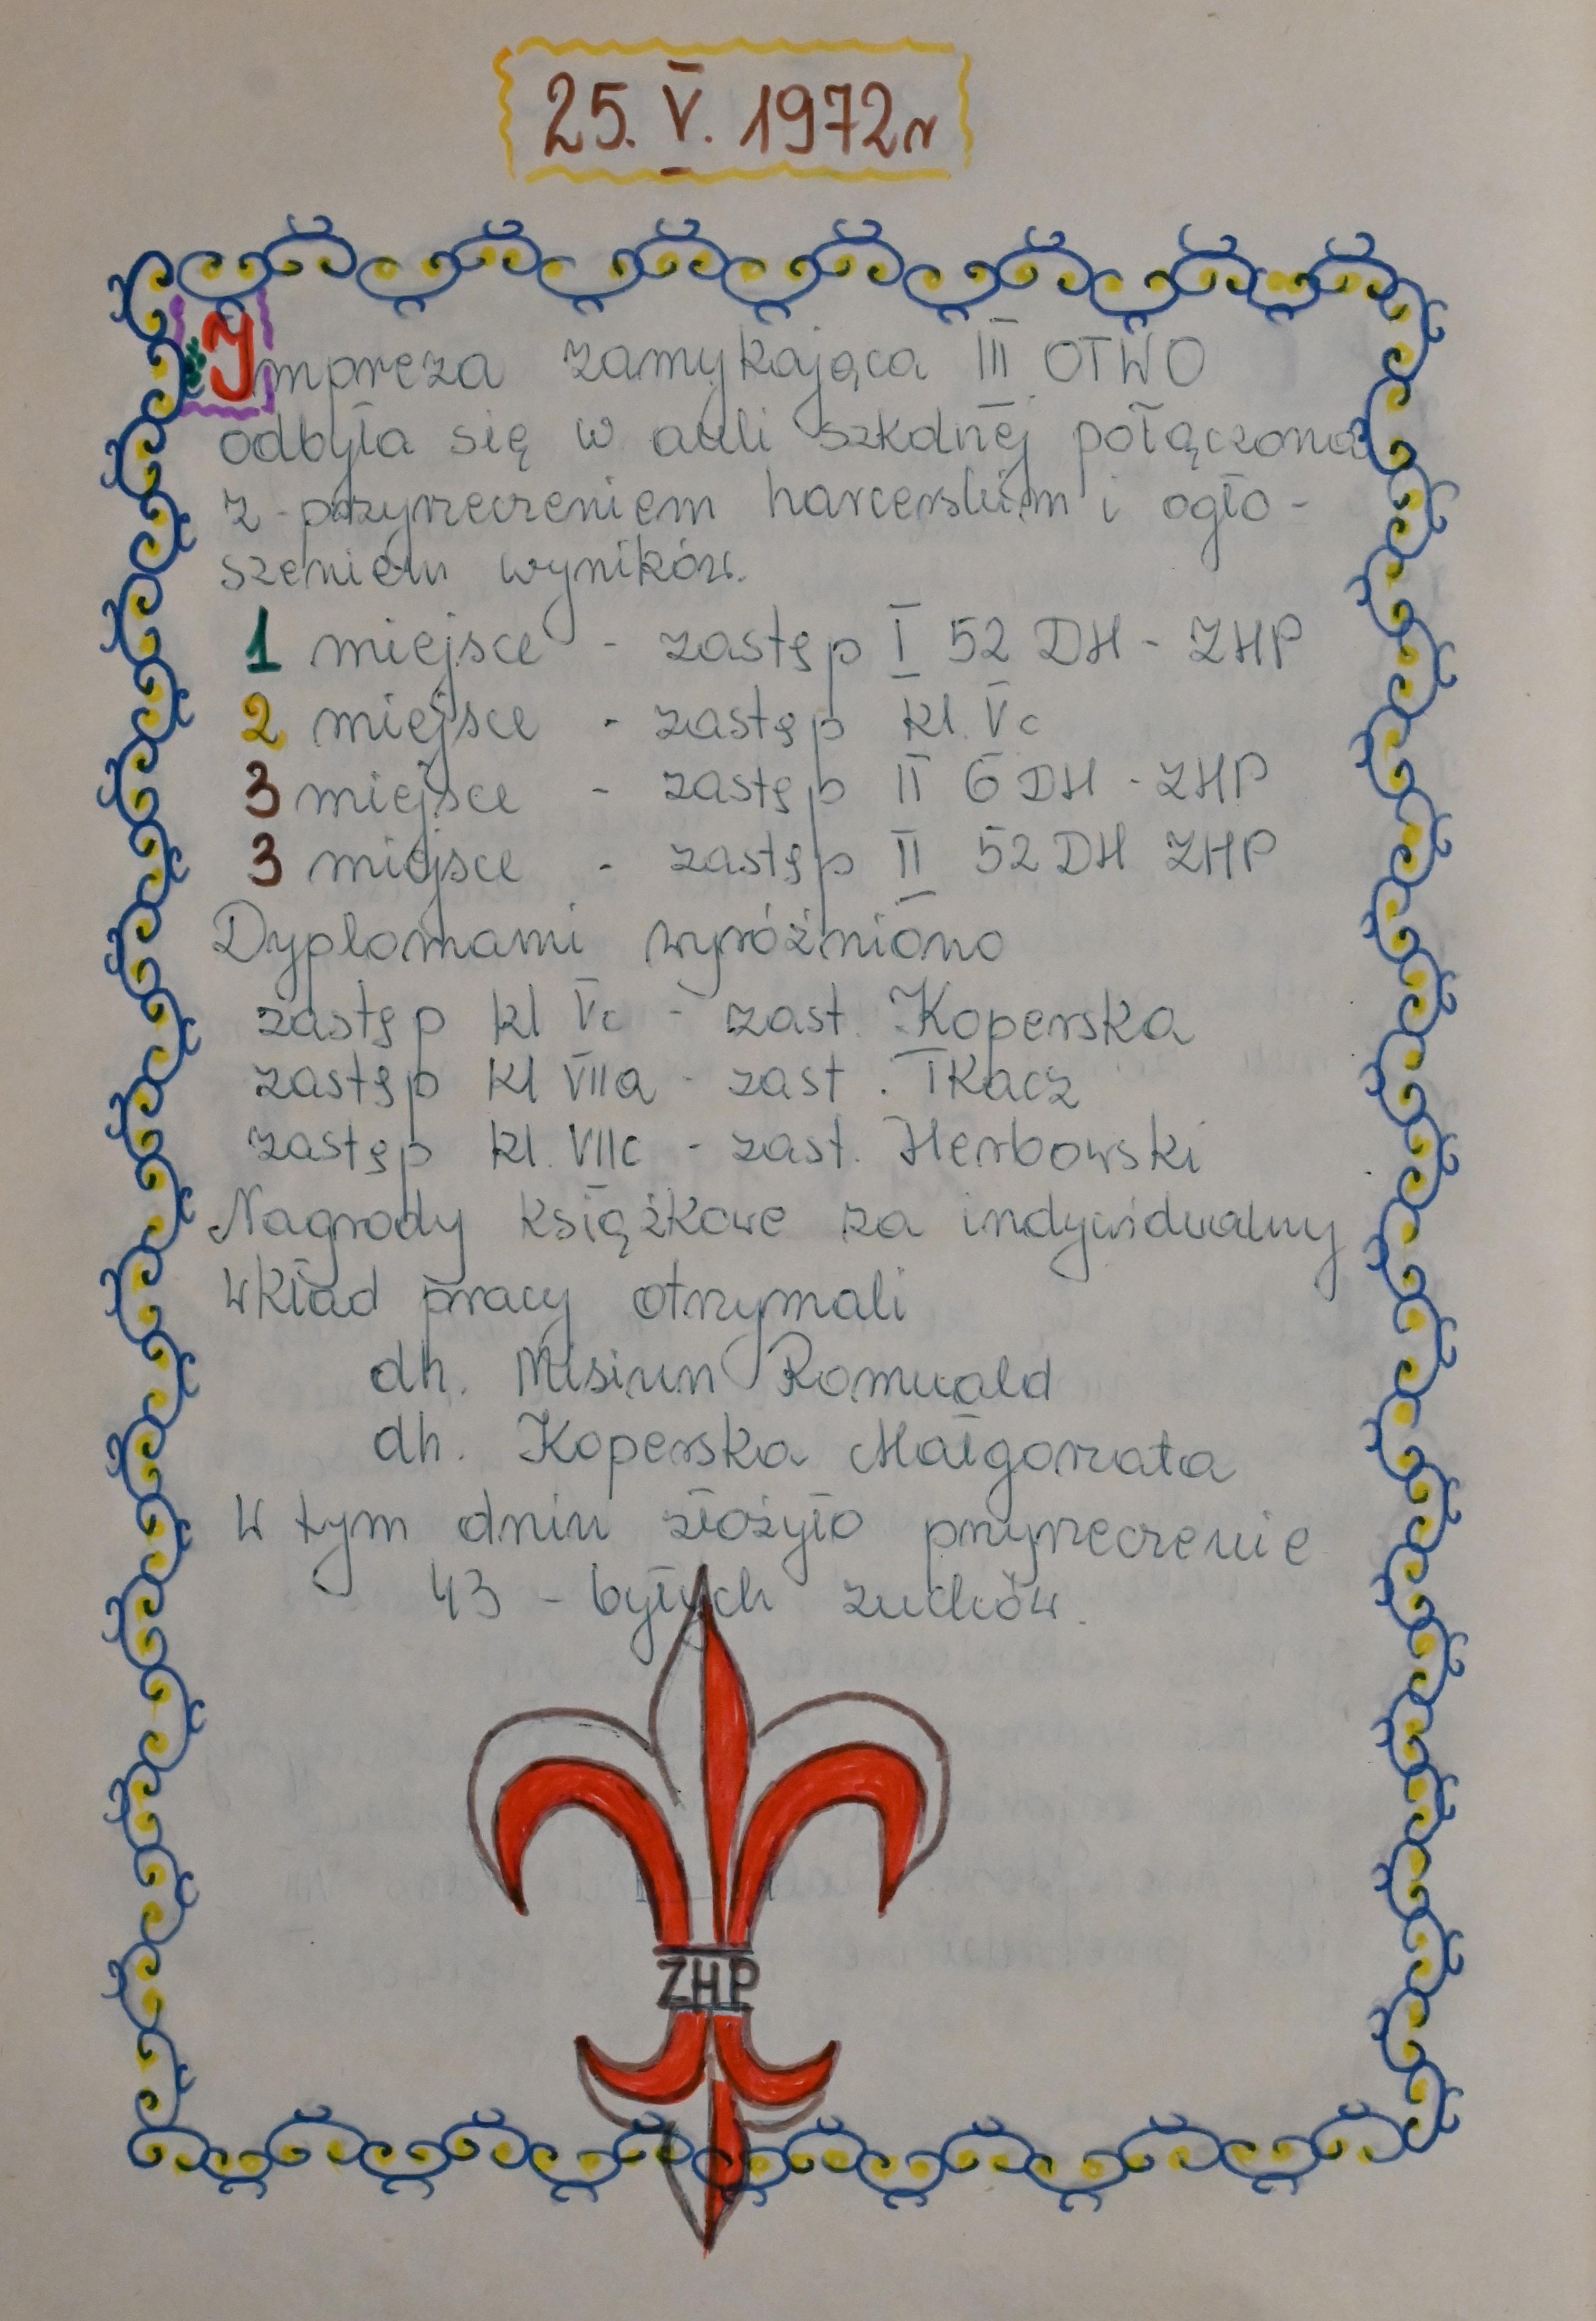 25. V. 1972r
Impreza zamykająca III OTWO
odbyła się w auli szkolnej połączona
z przyrzeczeniem harcerskim i ogło-
szeniem wyników.
1 miejsce - zastęp I 52 DH - ZHP
2 miejsce - zastęp kl. Vc
3 miejsce - zastęp II 6 DH - ZHP
3 miejsce - zastęp II 52 DH ZHP
Dyplomami wyróżniono
zastęp kl Vc - zast. Koperska
zastęp kl VIIa - zast. Tkacz
zastęp kl. VIIc - zast. Herbowski
Nagrody książkowe za indywidualny
wkład pracy otrzymali
dh. Misiun Romuald
dh. Koperska Małgorzata
W tym dniu złożyło przyrzeczenie
43 - byłych zuchów.
ZHP